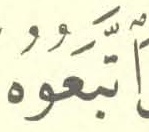 ٱتَّبَعُوهُ